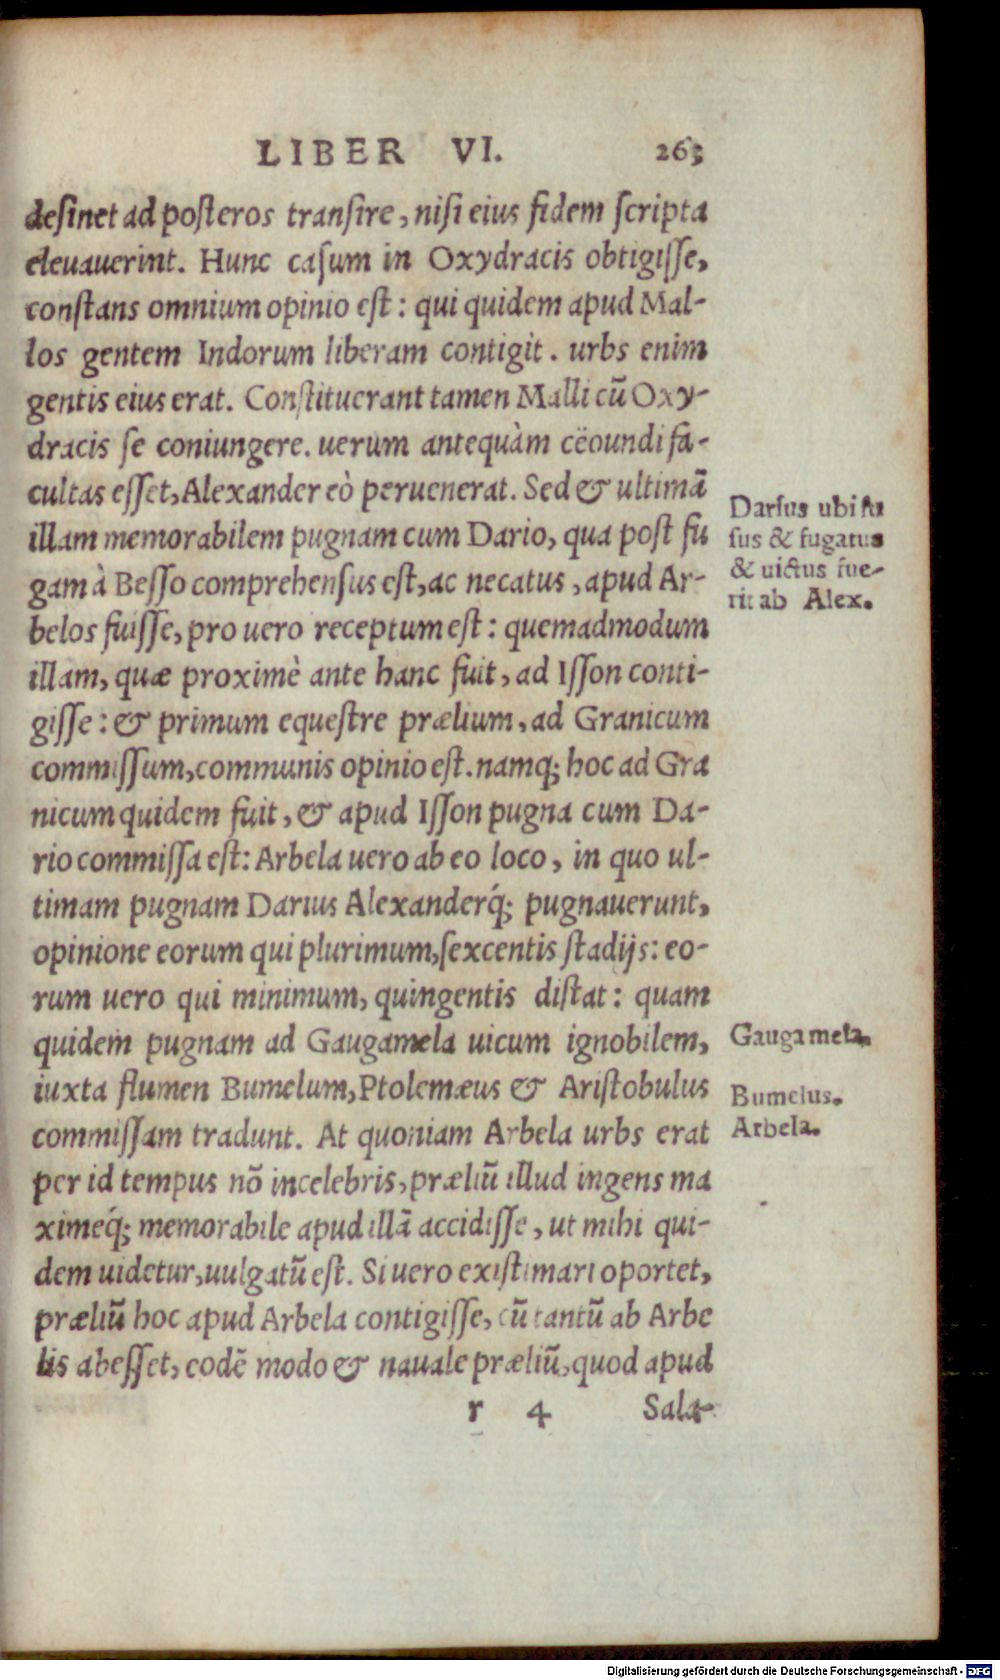 LIBER VI. 263
desinet ad posteros transire, nisi eius fidem scripta
eleuauerint. Hunc casum in Oxydracis obtigisse,
constans omnium opinio est: qui quidem apud Mal-
los gentem Indorum liberam contigit. urbs enim
gentis eius erat. Constituerant tamen Malli cū Oxy-
dracis se coniungere. uerum antequàm cëoundi fa-
cultas esset, Alexander eò peruenerat. Sed & ultimā
illam memorabilem pugnam cum Dario, qua post fu
gam à Besso comprehensus est, ac necatus, apud Ar-
belos fuisse, pro uero receptum est: quemadmodum
illam, quæ proximè ante hanc fuit, ad Isson conti-
gisse: & primum equestre prælium, ad Granicum
commissum, communis opinio est. namq; hoc ad Gra
nicum quidem fuit, & apud Isson pugna cum Da-
rio commissa est: Arbela uero ab eo loco, in quo ul-
timam pugnam Darius Alexanderq́; pugnauerunt,
opinione eorum qui plurimum, sexcentis stadijs: eo-
rum uero qui minimum, quingentis distat: quam
quidem pugnam ad Gaugamela uicum ignobilem,
iuxta flumen Bumelum, Ptolemæus & Aristobulus
commissam tradunt. At quoniam Arbela urbs erat
per id tempus nō incelebris, præliū illud ingens ma
ximeq́; memorabile apud illā accidisse, ut mihi qui-
dem uidetur, uulgatū est. Si uero existimari oportet,
præliū hoc apud Arbela contigisse, cū tantū ab Arbe
lis abesset, eodē modo & nauale præliū, quod apud
r 4 Sala-
Darius ubi fu
sus & fugatus
& uictus fue-
rit ab Alex.
Gaugamela.
Bumelus.
Arbela.
Digitalisierung gefördert durch die Deutsche Forschungsgemeinschaft - DFG